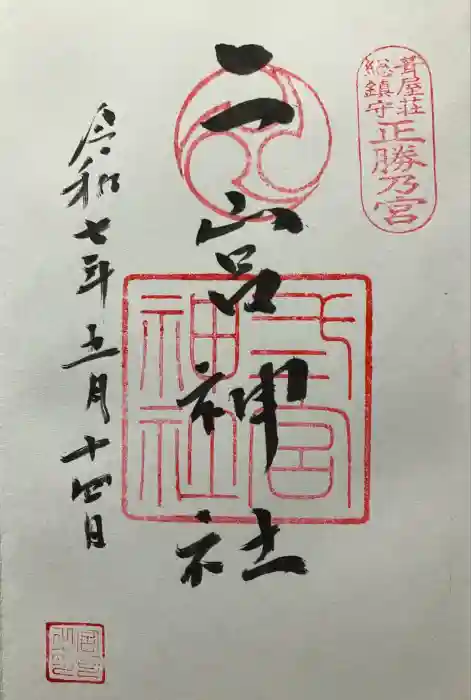 葺屋荘
総鎮守
正勝乃宮
二宮神社
弍宮
神社
令和七年五月十四日